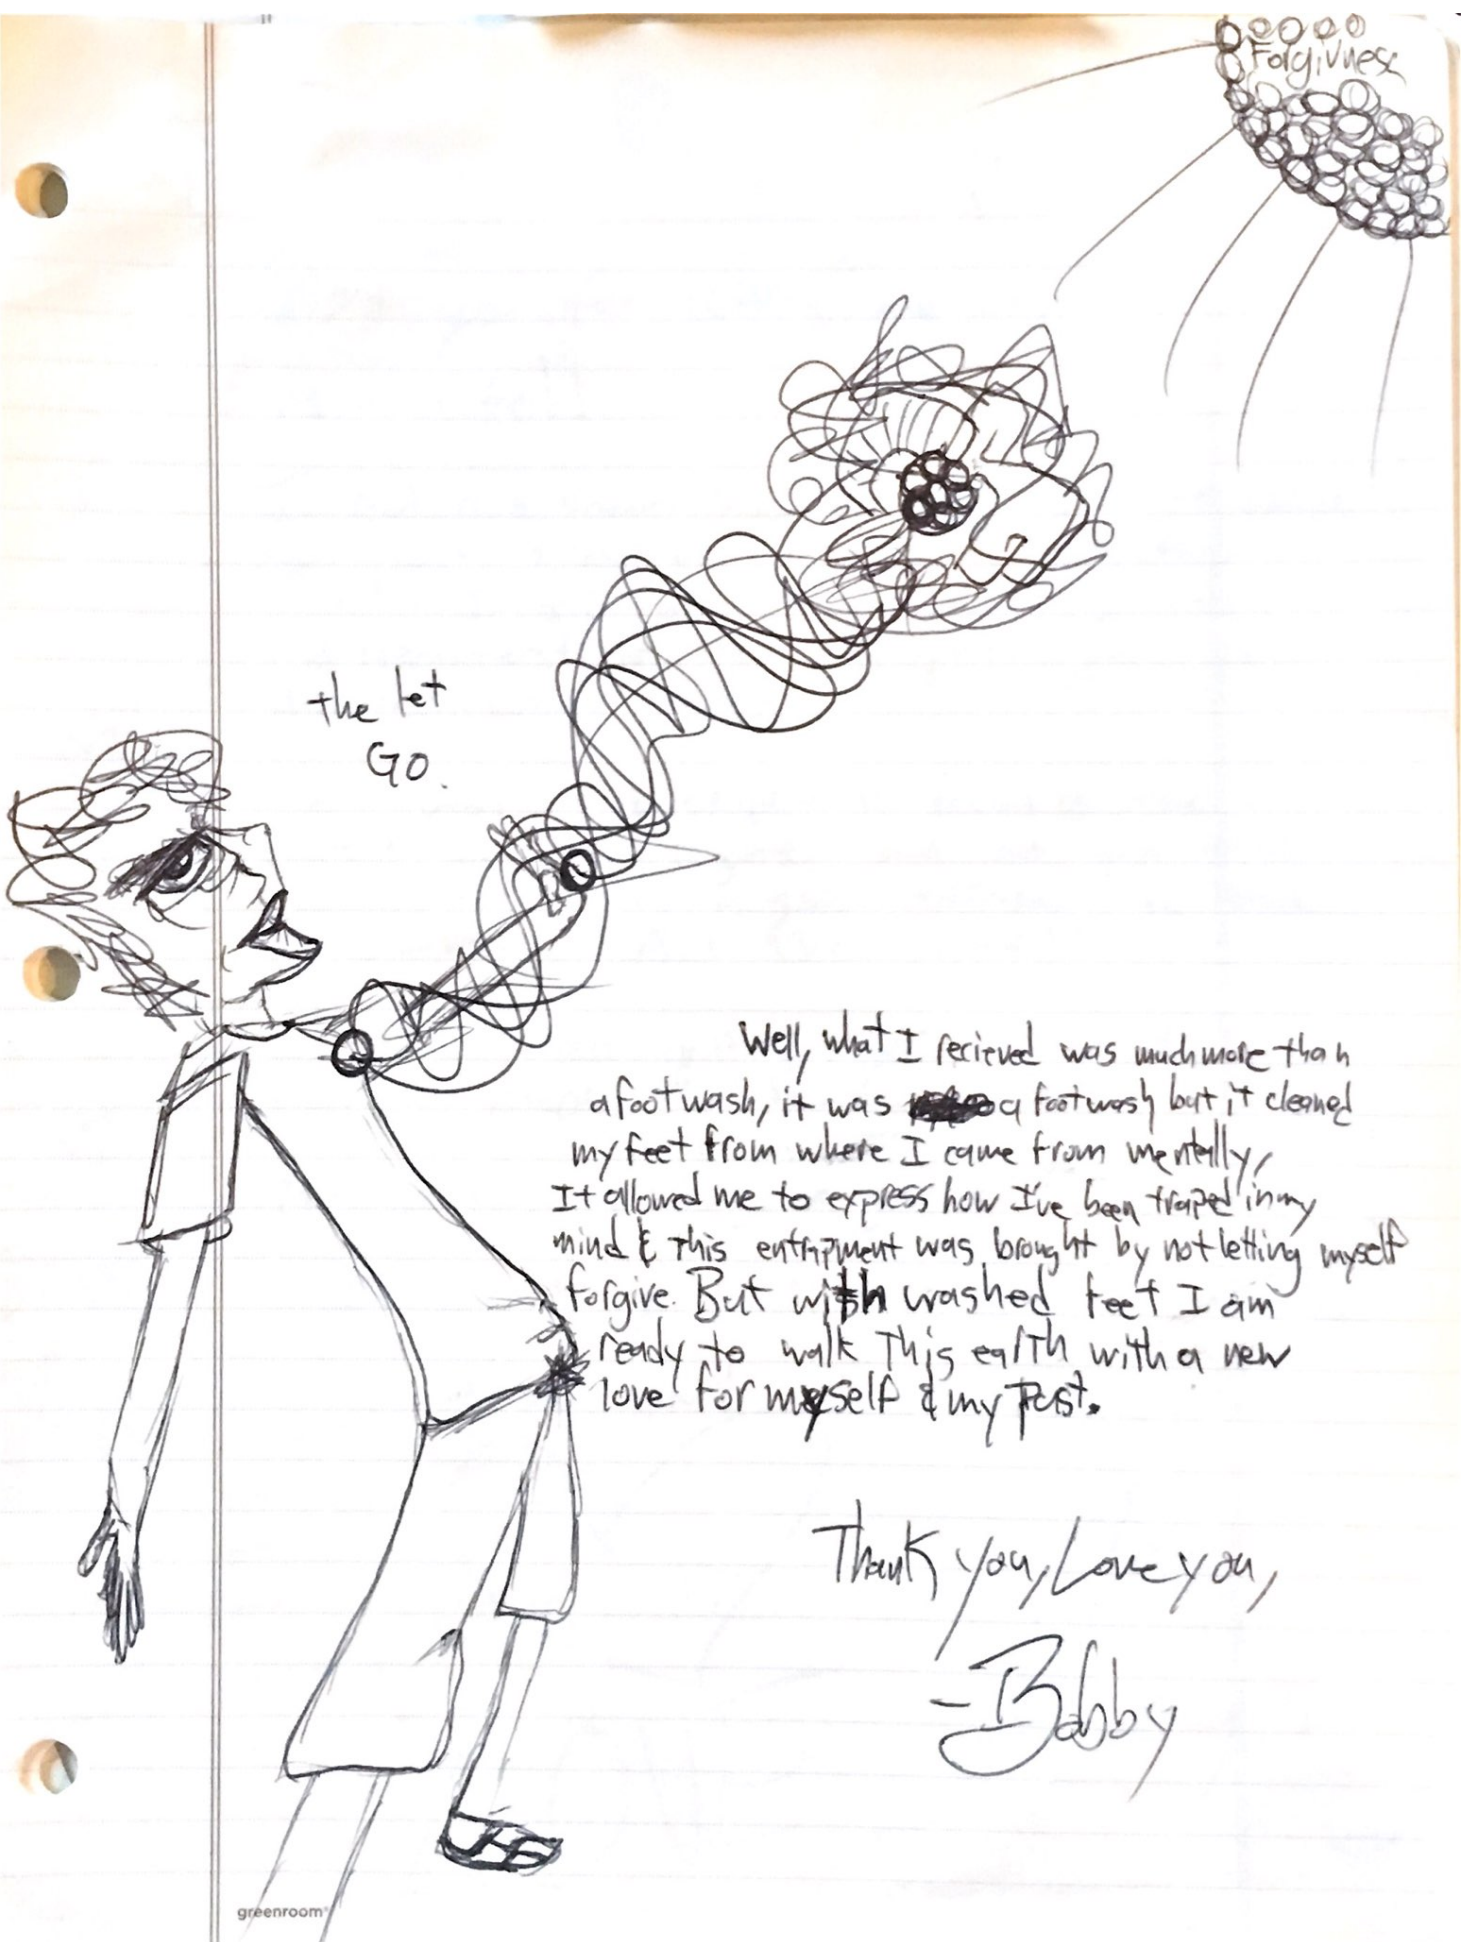 Forgivness
the let
GO.
Well, what I recieved was much more than
a foot wash, it was a foot wash but it cleaned
my feet from where I came from mentally,
It allowed me to express how I've been traped in my
mind & This entrapment was brought by not letting myself
forgive. But with washed feet I am
ready to walk This earth with a new
love for myself & my Past.
Thank you, Love you,
-Bobby
greenroom®